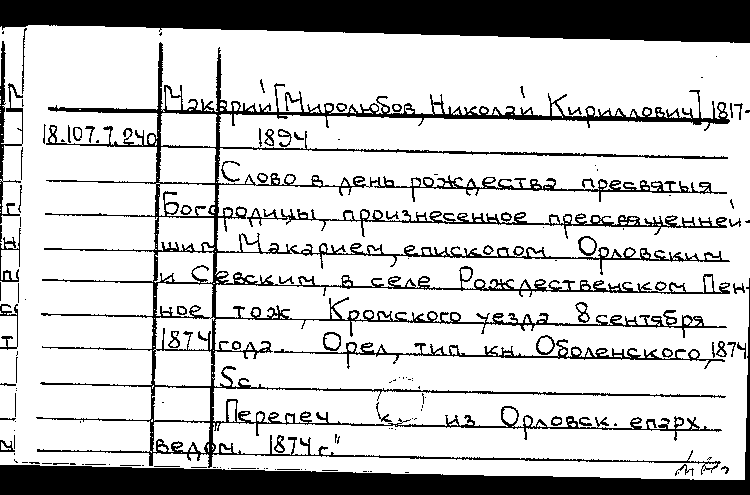 Макарий [Миролюбов, Николай Кириллович], 1817-
18.107.7.240 1894
Слово в день рождества пресвятыя
Богородицы, произнесенное преосвященней-
шим Макарием, епископом Орловским
и Севским, в селе Рождественском Пен-
ное тож, Кромского уезда 8 сентября
1874 года. Орел, тип. кн. Оболенского, 1874
5с.
"Перепеч. из Орловск. епарх.
ведом. 1874 г."